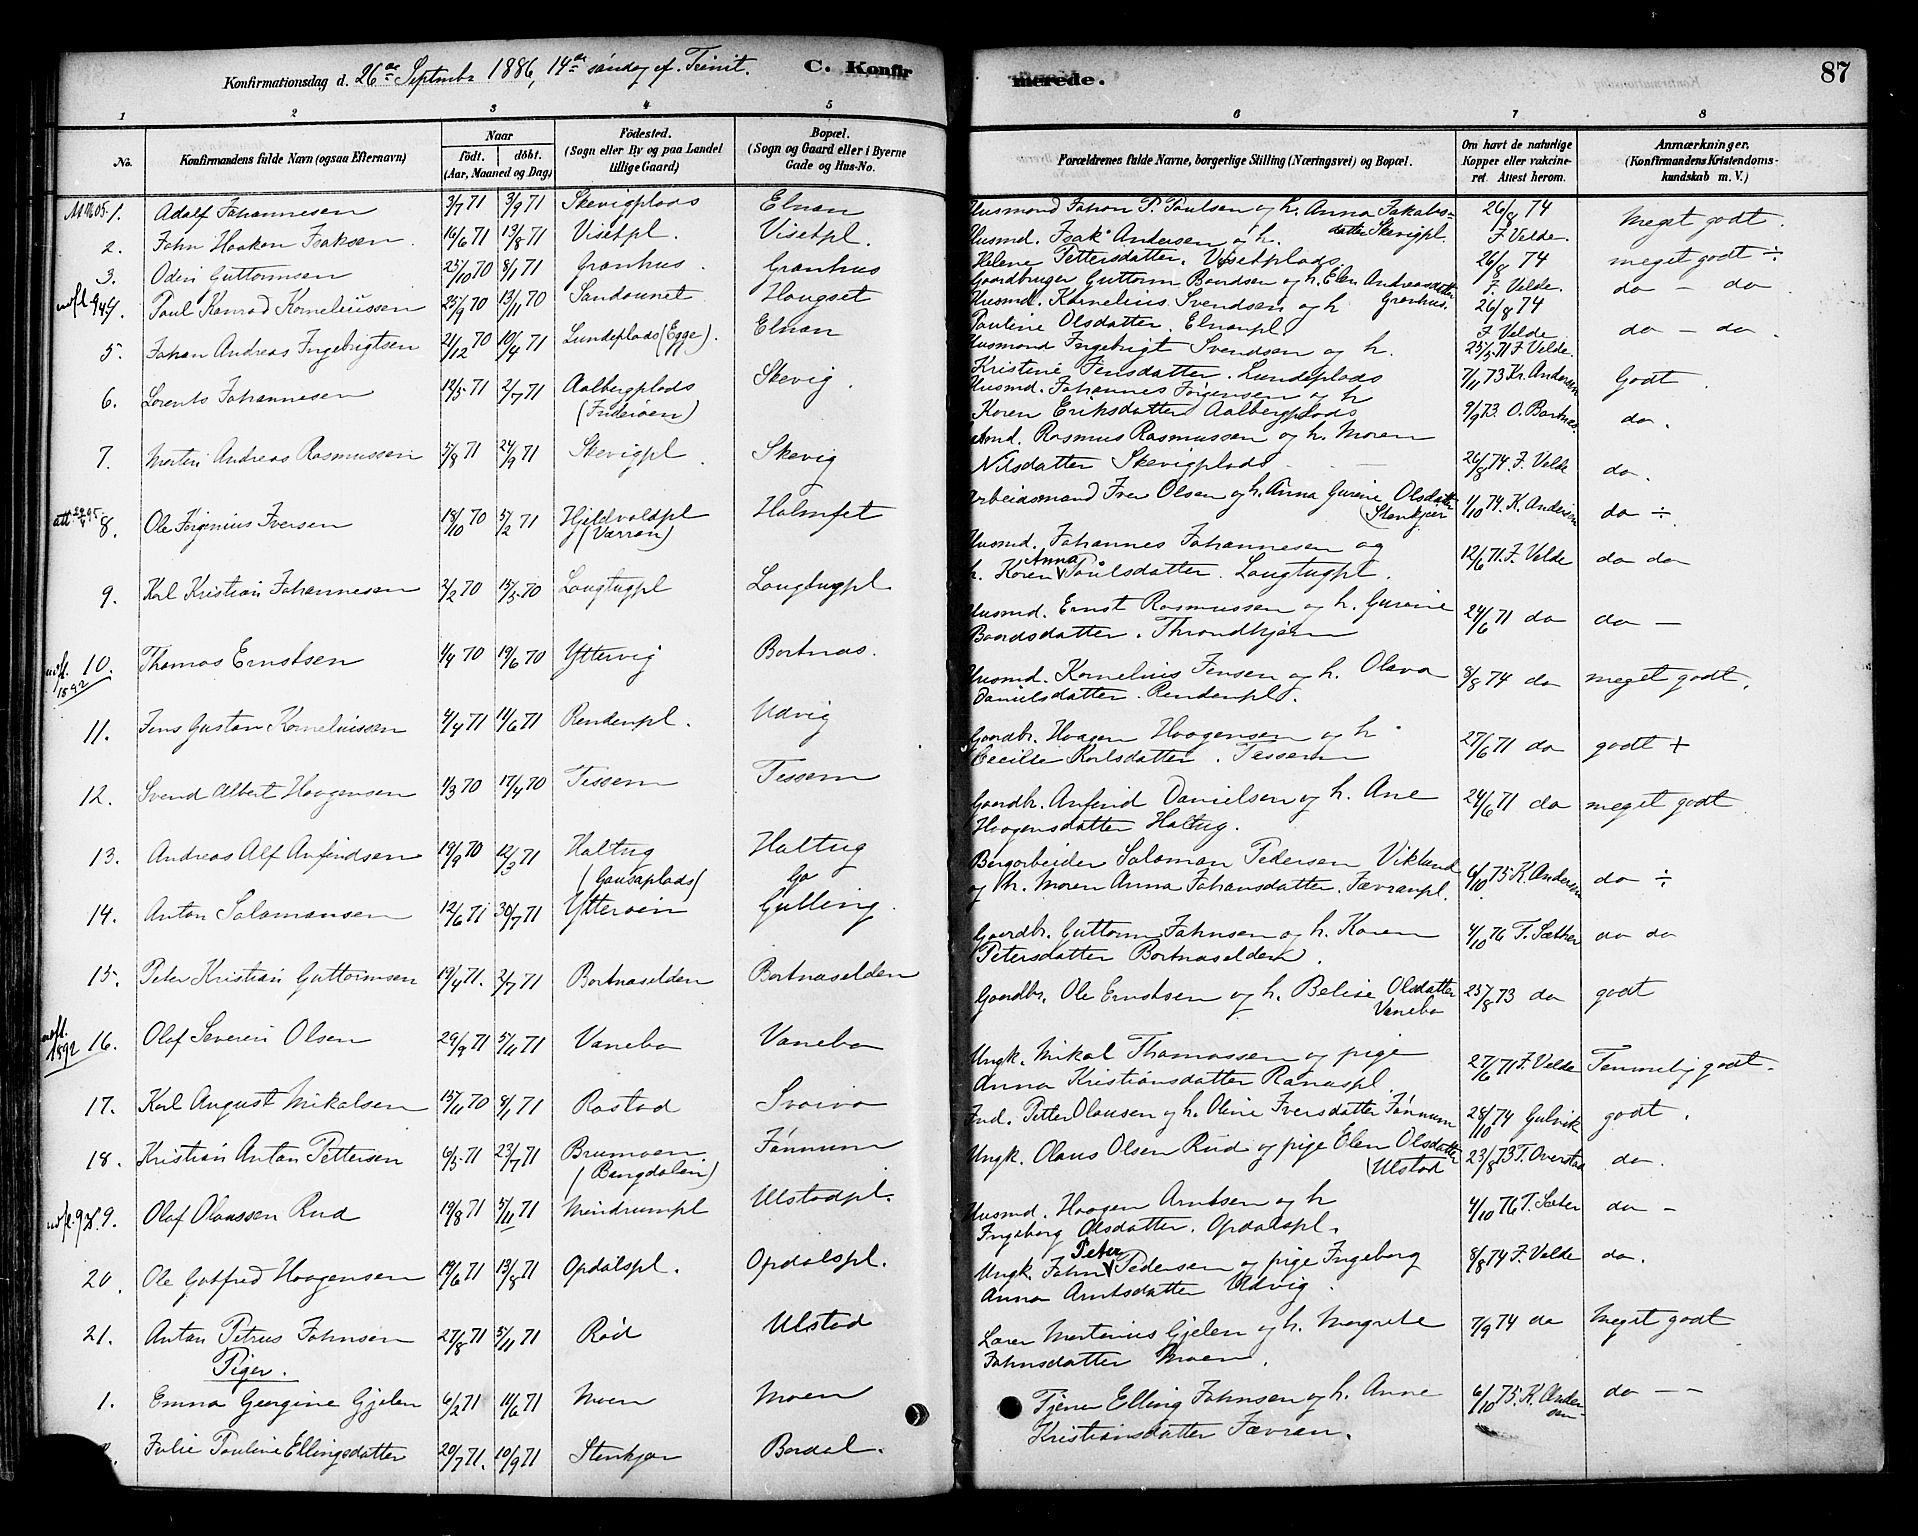 Konfirmationsdag d. 26de Septmbr 1886, 14de søndag ef. Trinit. C. Konfirmerede. 87
1 2 3 4 5 6 7 8
No. Konfirmandens fulde Navn (ogsaa Efternavn) Naar født. døbt. (Aar, Maaned og Dag) Födested. (Sogn eller By og paa Landet tillige Gaard) Bopæl. (Sogn og Gaard eller i Byerne Gade og Hus-No. Forældrenes fulde Navne, borgerlige Stilling (Næringsvei) og Bopæl. Om havt de naturlige Kopper eller vakcineret. Attest herom. Anmærkninger. (Konfirmandens Kristendomskundskab m. V.)
1. Adolf Johannesen 3/7 71 3/9 71 Skevigplads Elnan Husmand Johan P. Paulsen og h. Anna Jakobsdatter Skevigpl. 26/8 74 F. Velde. Meget godt.
2. John Haakon Isaksen. 16/6 71 13/8 71 Visetpl. Visetpl. Husmd. Isak Andersen og h. Helene Pettersdatter. Visetplads. 26/8 74 F. Velde. meget godt ÷
3. Odin Guttormsen 25/10 70 8/1 71 Granhus. Granhus Gaardbruger Guttorm Baardsen og h. Elen Andreasdatter Granhus. 26/8 74 F. Velde do - do
4. Paul Konrad Korneliussen 25/9 70 13/11 70 Sandaunet Haugset Husmd. Kornelius Svendsen og h Pauline Olsdatter. Elnanpl. 25/5 71 F. Velde. do - do.
5. Johan Andreas Ingebrigtsen 21/12 70 10/4 71 Lundeplads (Egge). Elnan Husmand Ingebrigt Svendsen og h. Kristine Jensdatter. Lundeplads 7/11 73 Kr. Andersen Godt.
6. Lorents Johannesen 12/5 71 2/7 71 Aalbergplads (Inderøen) Skevig. Husmd. Johannes Jørgensen og h Karen Eriksdatter Aalbergplads 9/9 73. O. Bartnes. do.
7. Morten Andreas Rasmussen 5/8 71 24/9 71 Skevigpl. Skevig Rasmus Rasmussen og h. Maren Nilsdatter Skevigplads. 26/8 74. F. Velde do.
8. Ole Jørginius Iversen 18/10 70 5/2 71 Hjeldvoldpl (Værran) Holmset Arbeidsmand Iver Olsen og h. Anna Gurine Olsdatter (Stenkjær 1/10 74. K. Andersen do ÷
9. Karl Kristian Johannesen 2/2 70 15/5 70 Langtugpl Langtugpl. Husmd. Johannes Johannesen og h. Karen Anna Paulsdatter. Langtugpl. 12/6 71. F. Velde do do
10. Thomas Ernstsen 1/4 70 19/6 70 Yttervig Bartnas. Husmd. Ernst Rasmussen og h. Gurine Baardsdatter. Throndhjem 24/6 71 do do -
1892
11. Jens Gustav Korneliussen 4/4 71 11/6 71 Rendenpl. Udvig Husmd. Kornelius Jensen og h. Olava Danielsdatter. Rendenpl. 8/8 74 do meget godt.
12. Svend Albert Haagensen 1/3 70 17/4 70 Tessem Tessem Gaardbr. Haagen Haagensen og h Cecilie Karlsdatter. Tessem 27/6 71 do godt +
13. Andreas Alf Anfindsen 19/9 70 12/3 71 Haltug (Gausaplads) Haltug Gaardbr. Anfind Danielsen og h. Ane Haagensdatter Haltug. 24/6 71 do meget godt
14. Anton Salamonsen 12/6 71 30/7 71 Ytterøen Gulling. Bergarbeider Salamon Pedersen Viklund og h. Maren Anna Johansdatter. Jævranpl. 6/10 75 K. Andersen do ÷
15. Peter Kristian Guttormsen 19/4 71. 2/7 71 Bartnaselden Bartnaselden Gaardbr. Guttorm Johnsen og h. Karen Petersdatter Bartnaselden. 4/10 76 T. Sæther do do
16. Olaf Severin Olsen 29/9 71 5/11 71 Vanebo Vanebo Gaardbr. Ole Ernstsen og h. Belise Olsdatter Vanebo 25/8 73 do godt
1892
17. Karl August Mikalsen 15/11 70 8/1 71 Rostad Svarva Ungk. Mikal Thomassen og pige Anna Kristiansdatter Ranaspl. 27/6 71 F. Velde Temmelig godt.
18. Kristian Anton Pettersen 6/5 71 23/7 71 Brumoen. (Bangdalen) Jønnum Ind. Petter Olausen og h. Oline Iversdatter Jønnum 28/10 74 Gulvik godt.
19. Olaf Olaussen Rud 19/8 71 5/11 71 Mindrumpl Ulstadpl. Ungk. Olaus Olsen Rud og pige Elen Olsdatter (Ulstad 23/8 73 T. Overstad do.
20. Ole Gotfred Haagensen 19/6 71 13/8 71 Opdalspl. Opdalspl. Husmd. Haagen Arntsen og h Ingeborg Olsdatter. Opdalspl. 4/10 76 T. Sæter do -
21. Anton Petrus Johnsen 27/8 71 5/11 71 Rød Ulstad Ungk. John Peter Pedersen og pige Ingeborg Anna Arntsdatter Udvig. 8/8 74 F. Velde do.
Piger.
1. Emma Georgine Gjelen 6/2 71 11/6 71 Moen Moen Lærer Martinius Gjelen og h. Margrete Johnsdatter Moen. 7/9 74 do Meget godt
Julie Pauline Ellingsdatter 20/7 71. 10/9 71 Stenkjær Bardal. Tjener Elling Johnsen og h. Anne Kristiansdatter Jævran. 6/10 75. K. Andersen do - -